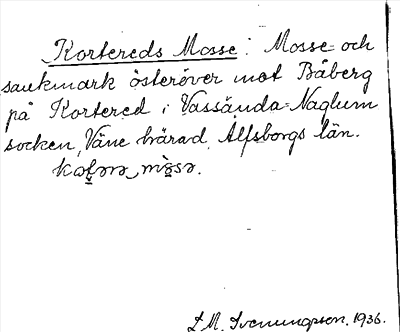 Kortereds Mosse: Mosse- och
sankmark österöver mot Båberg
på Kortered i Vassända-Naglum
socken, Väne härad, Älfsborgs län.
mòsə.
D. M. Svenungsson, 1936.